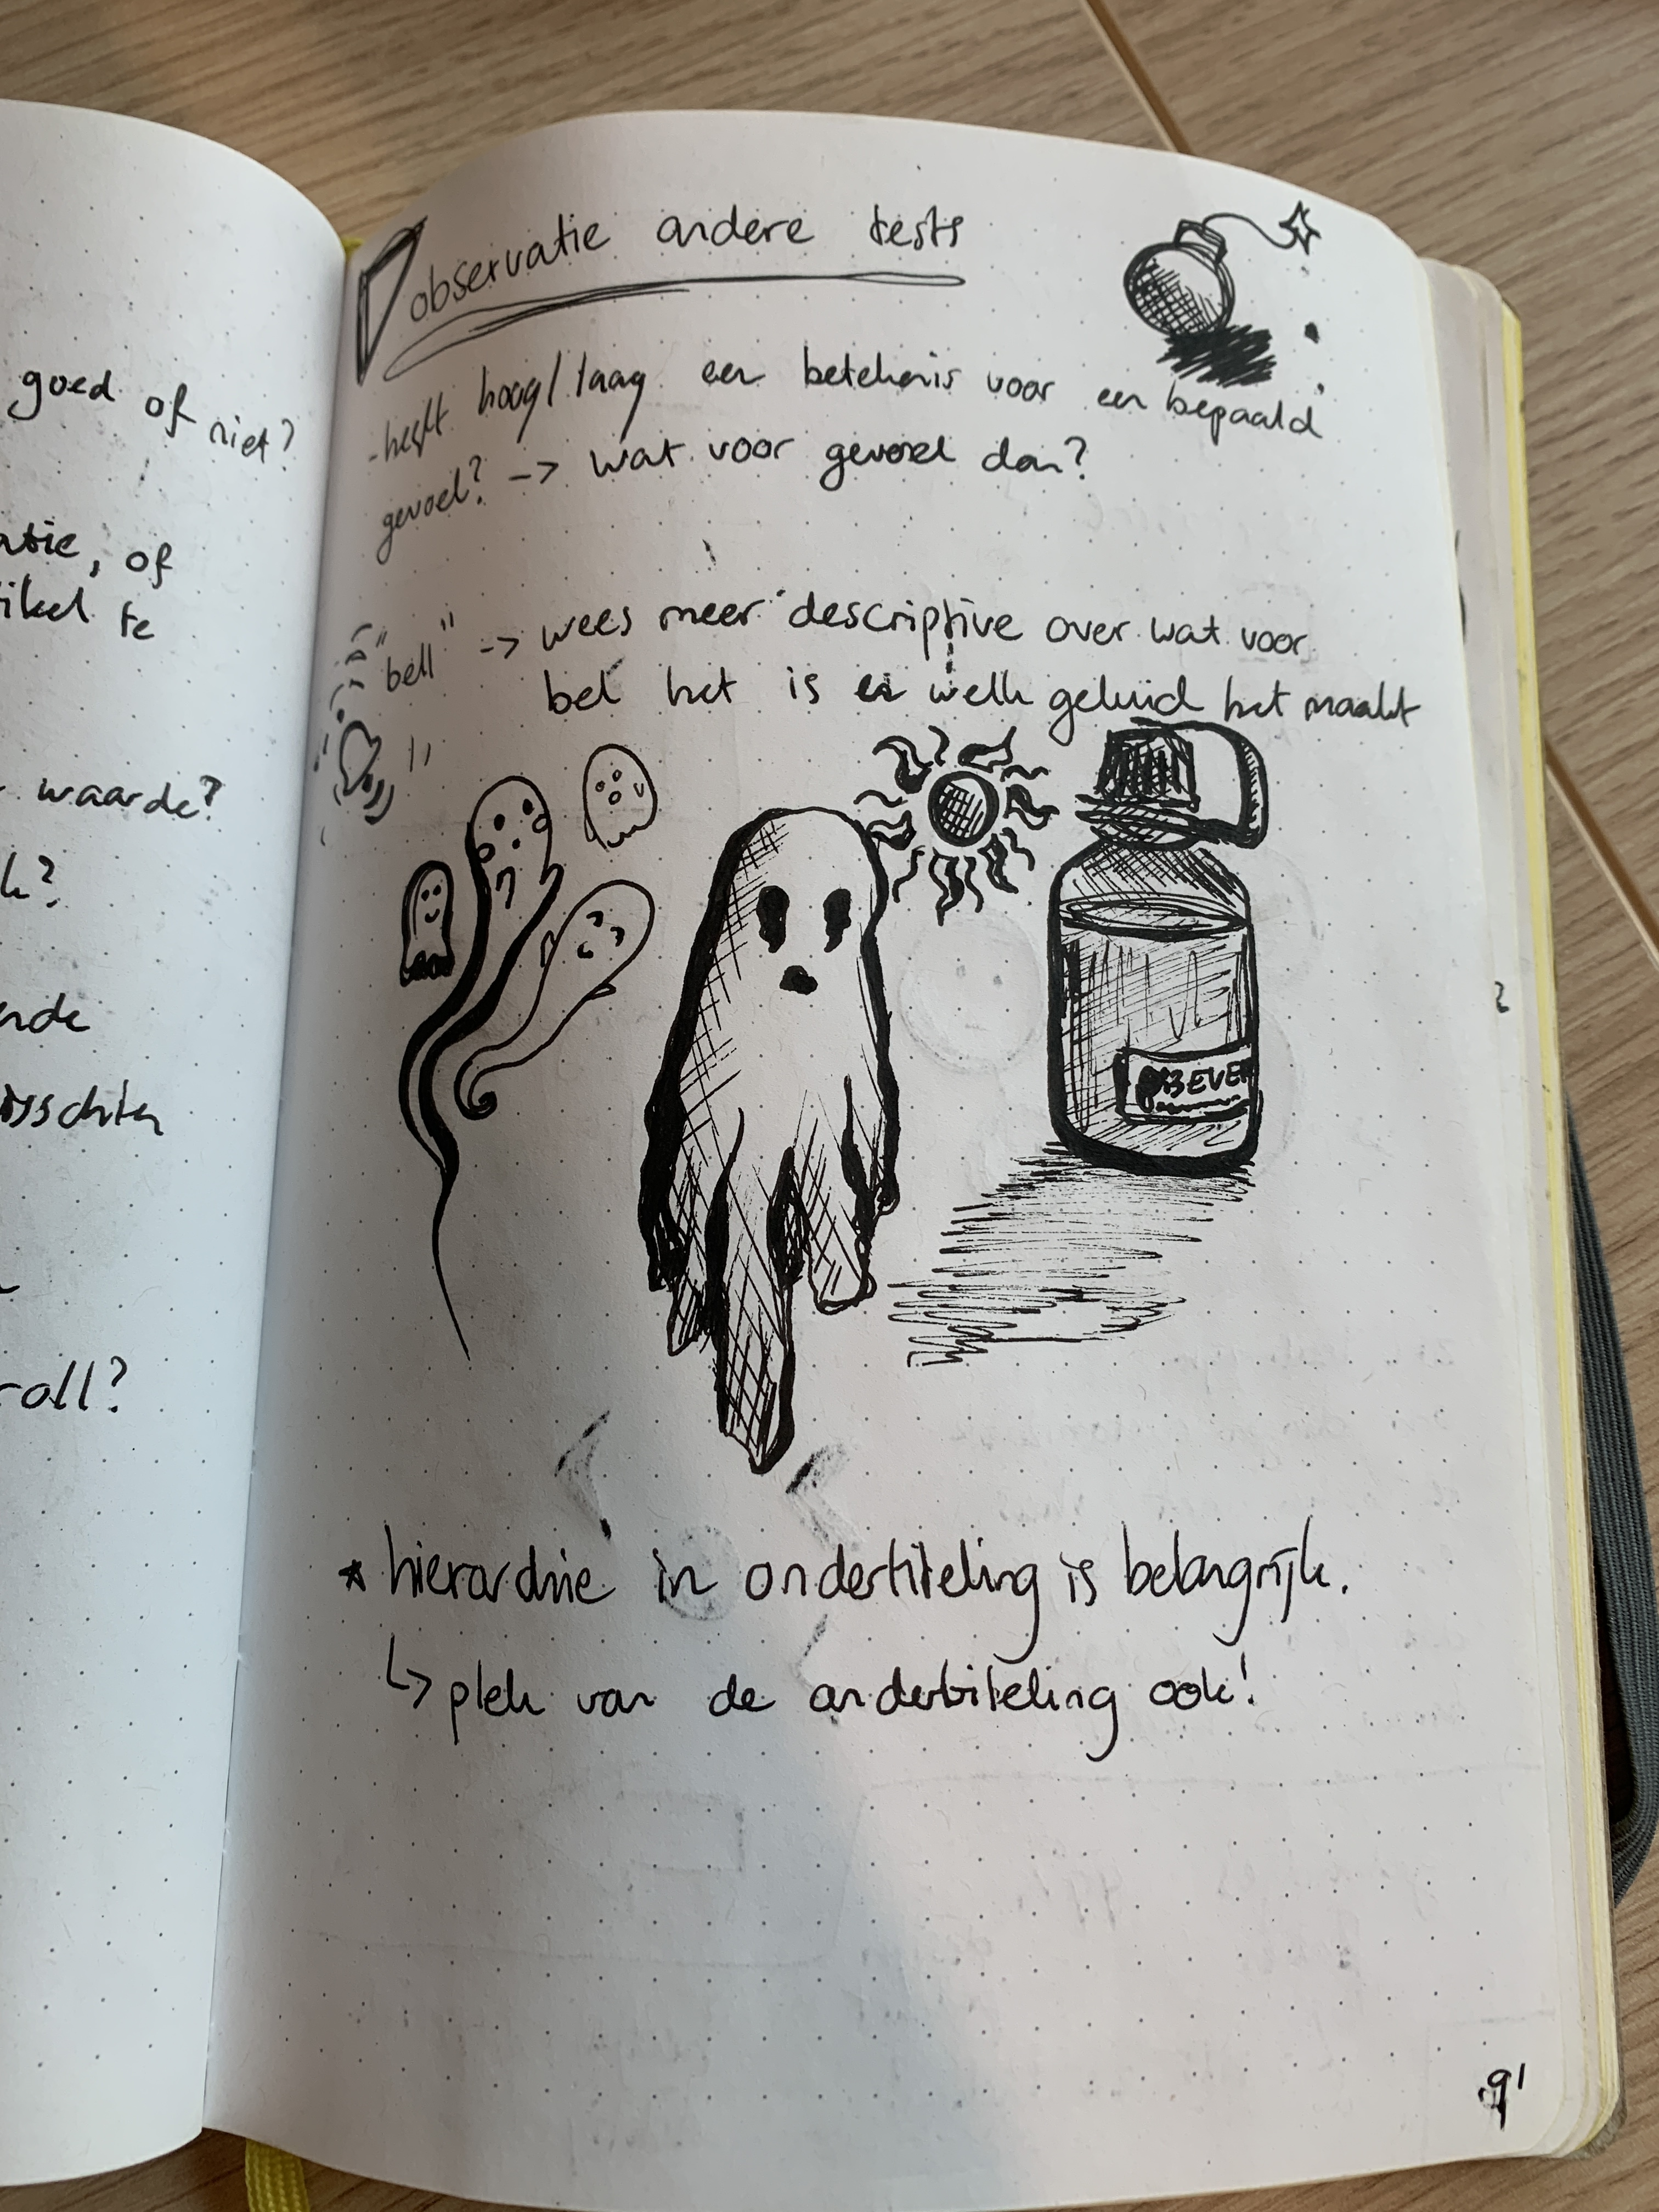 goed of niet?
atie, of
ikel te
waarde?
k?
ende
oll?
observatie andere tests
- heeft hoog/laag een betekenis voor een bepaald
gevoel? -> wat voor gevoel dan?
"bell" -> wees meer descriptive over wat voor
bel het is en welk geluid het maakt
BEVER
* hierarchie in ondertiteling is belangrijk.
↳ plek van de ondertiteling ook!
91